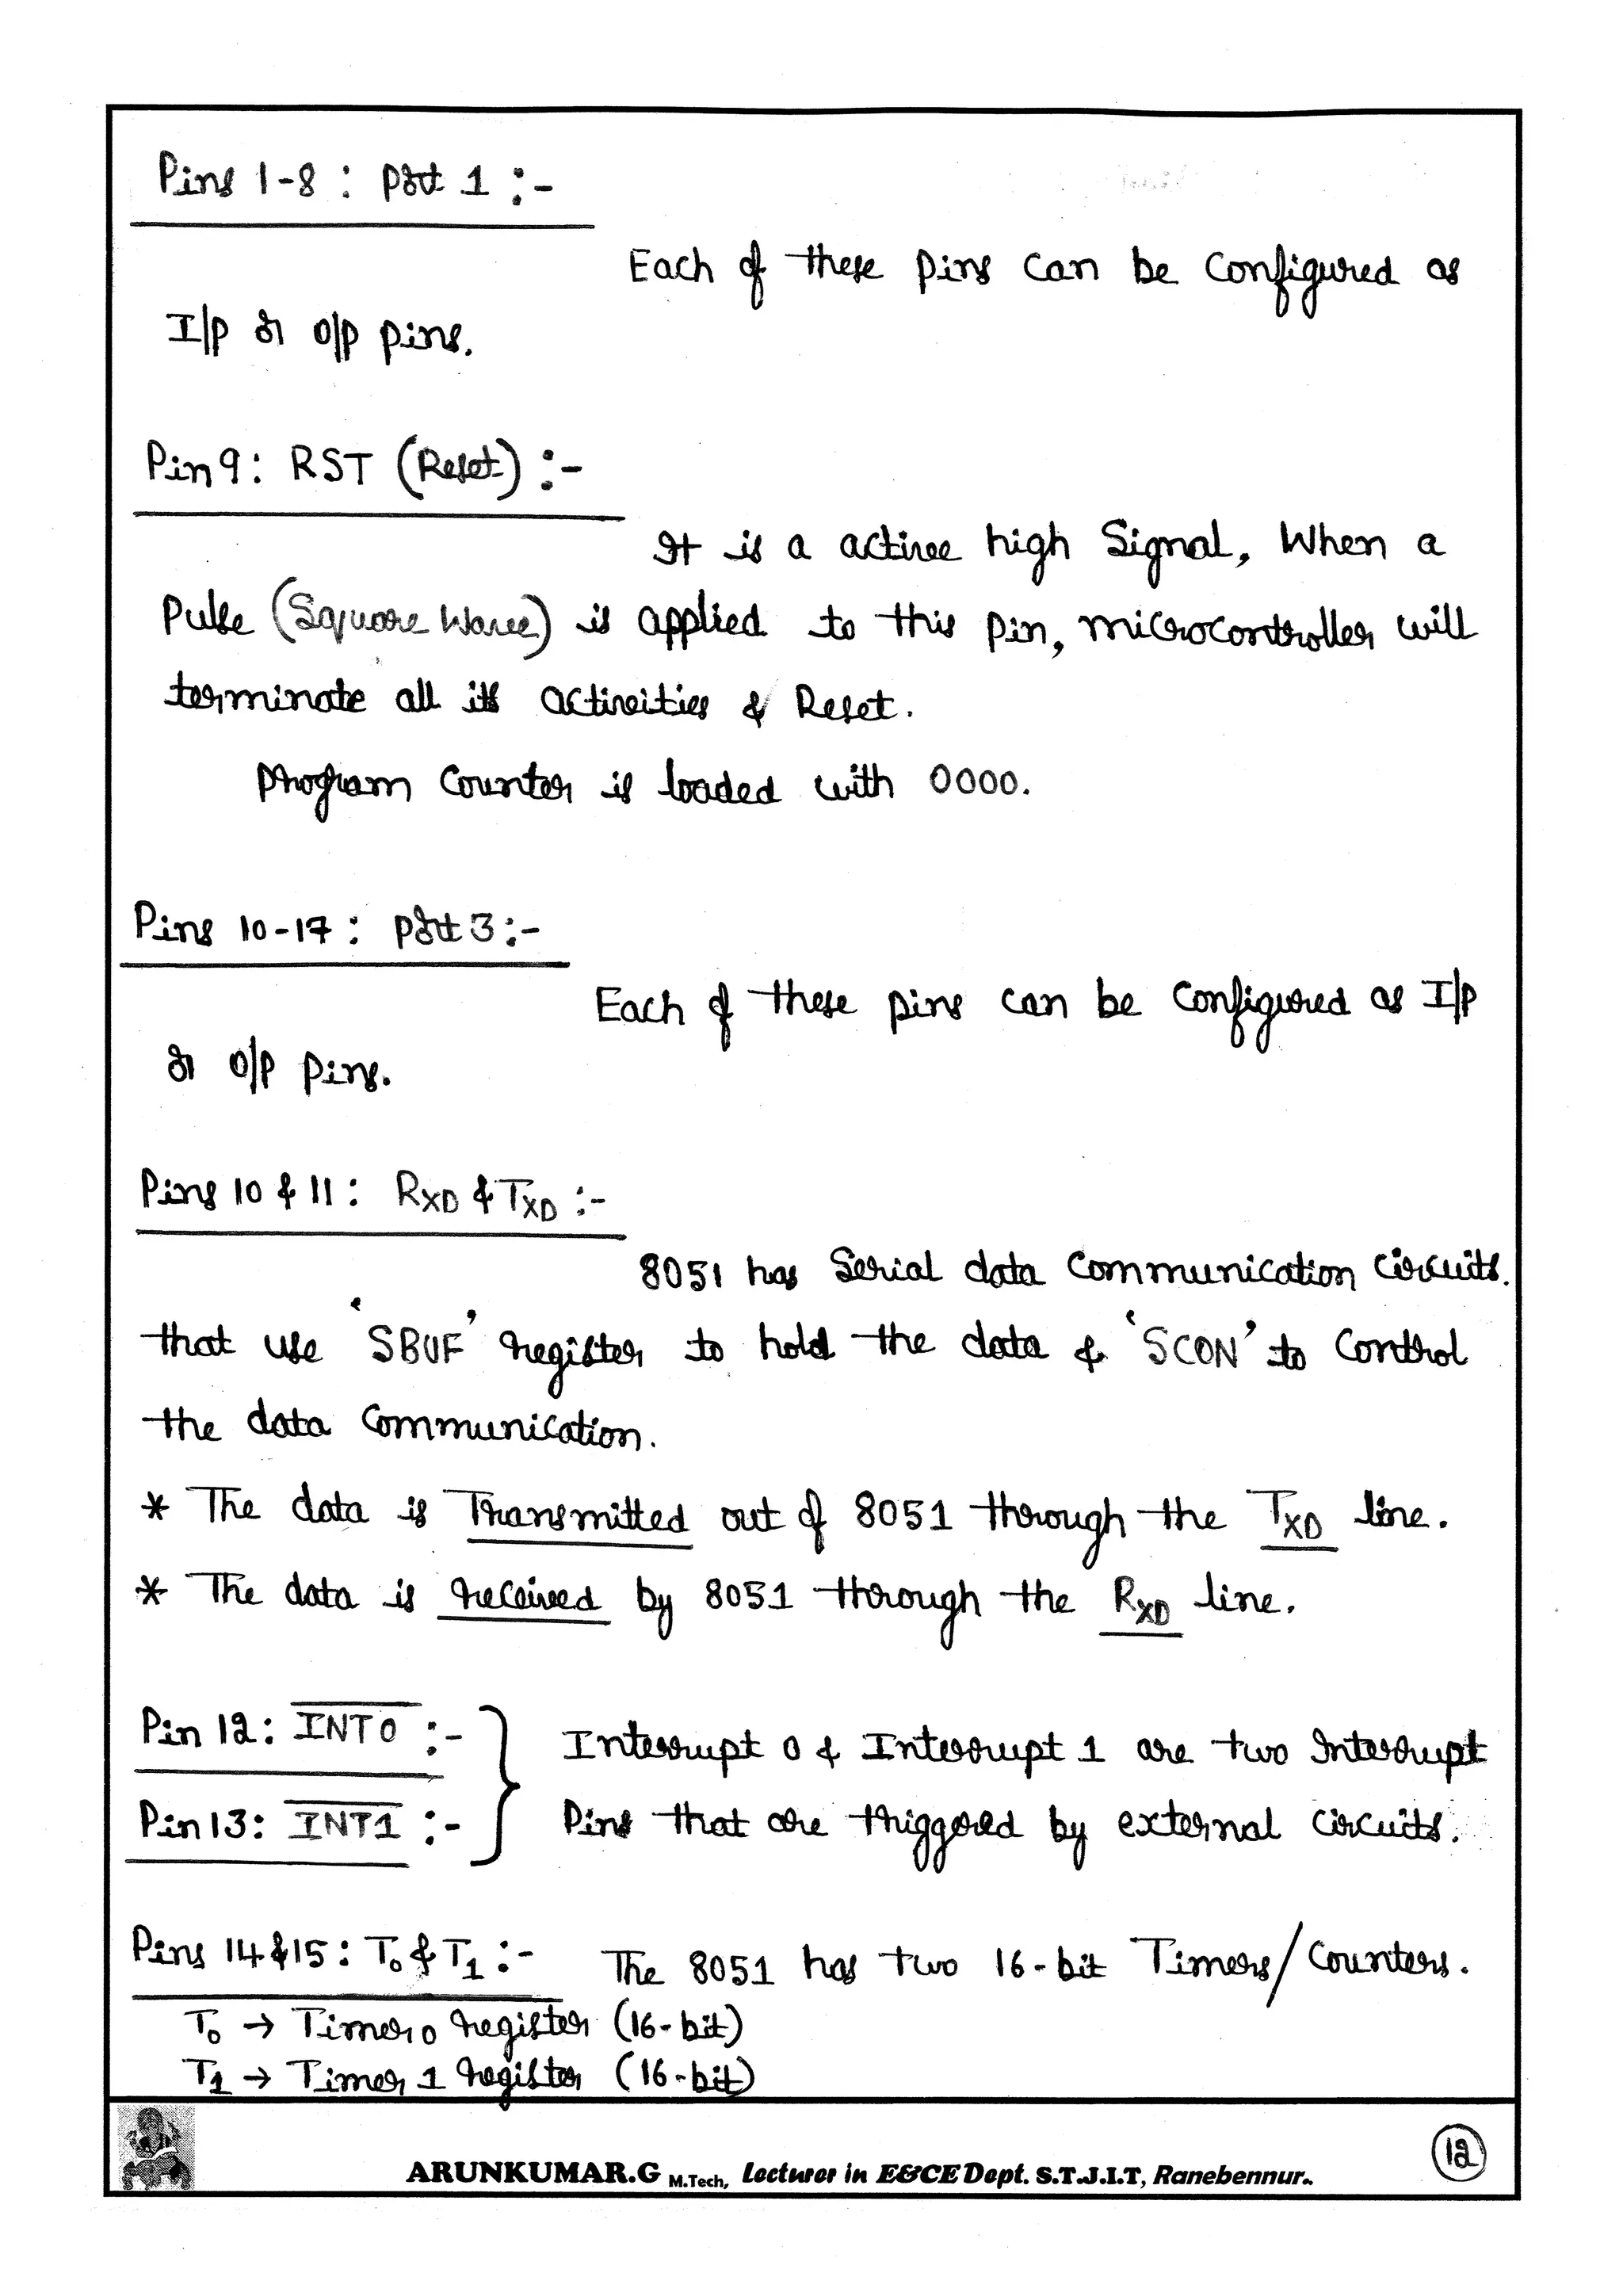 Pins 1-8 : Port 1 :-
Each of these pins can be configured as
I/p or o/p pins.
Pin 9: RST (Reset) :-
It is a active high Signal, When a
Pulse (Square Wave) is applied to this pin, microcontroller will
terminate all its activities & Reset.
Program Counter is loaded with 0000.
Pins 10-17 : Port 3 :-
Each of these pins can be configured as I/p
or o/p pins.
Pins 10 & 11 : RXD & TXD :-
8051 has Serial data Communication Circuits.
that use 'SBUF' register to hold the data & 'SCON' to Control
the data Communication.
* The data is Transmitted out of 8051 through the TXD line.
* The data is received by 8051 through the RXD line.
Pin 12: I̅N̅T̅0̅ :-
Pin 13: I̅N̅T̅1̅ :-
Interrupt 0 & Interrupt 1 are two Interrupt
Pins that are triggered by external circuits.
Pins 14 & 15 : T0 & T1 :- The 8051 has two 16-bit Timers/Counters.
T0 → Timer 0 register (16-bit)
T1 → Timer 1 register (16-bit)
ARUNKUMAR.G M.Tech, Lecturer in E&CE Dept. S.T.J.I.T, Ranebennur..
12